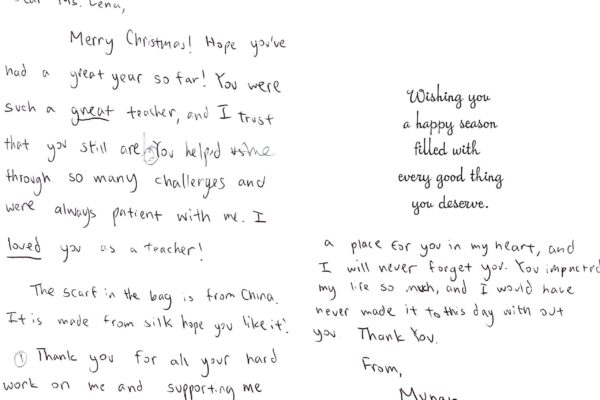 Merry Christmas! Hope you've
had a great year so far! You were
such a great teacher, and I trust
that you still are. You helped me
through so many challenges and
were always patient with me. I
loved you as a teacher!
The scarf in the bag is from China.
It is made from silk hope you like it!
① Thank you for all your hard
work on me and supporting me
Wishing you
a happy season
filled with
every good thing
you deserve.
a place for you in my heart, and
I will never forget you. You impacted
my life so much, and I would have
never made it to this day with out
you. Thank You.
From,